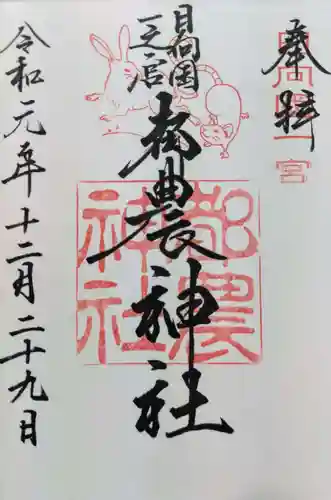 奉拝
日向国一宮
日向國
一之宮
都農神社
都農神社
令和元年十二月二十九日